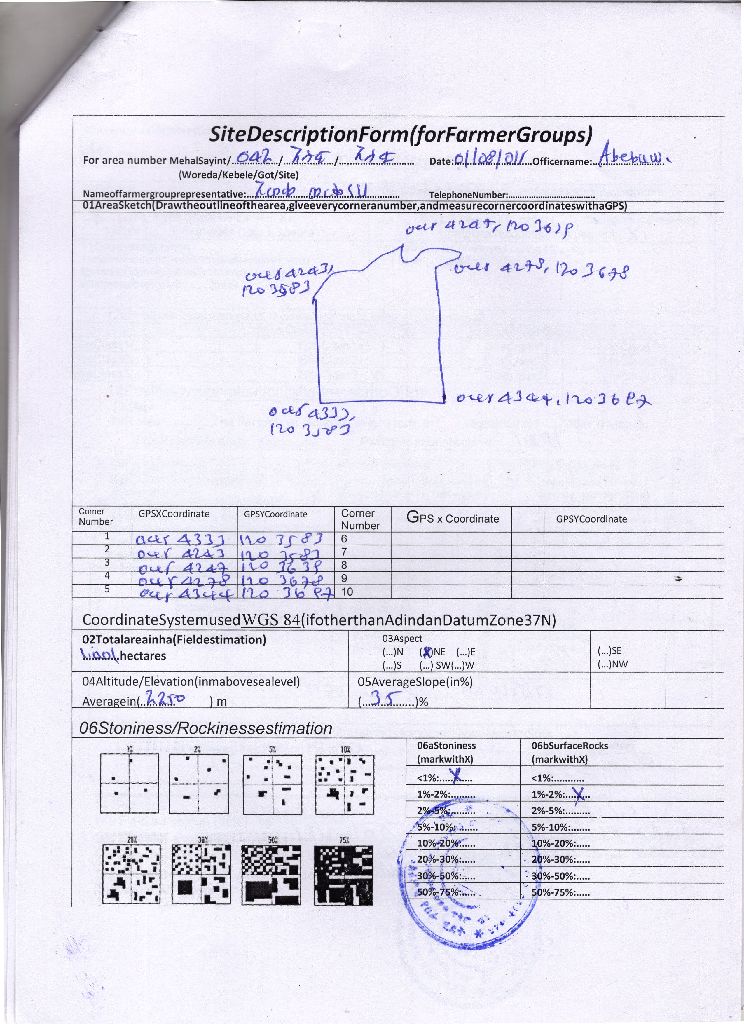 SiteDescriptionForm(forFarmerGroups)
For area number MehalSayint/ 042 / / Date: Officername: Abebaw.
(Woreda/Kebele/Got/Site)
Nameoffarmergrouprepresentative: TelephoneNumber:
01AreaSketch(Drawtheoutlineofthearea,giveeverycorneranumber,andmeasurecornercoordinateswithaGPS)
4247, 1203639
4243,
4278, 1203678
4344, 1203687
4333,
Corner Number GPSXCoordinate GPSYCoordinate Corner Number GPS x Coordinate GPSYCoordinate
1 4333 120 3583 6
2 4243 120 3583 7
3 4247 120 3639 8
4 4278 120 3678 9
5 4344 120 3687 10
CoordinateSystemusedWGS 84(ifotherthanAdindanDatumZone37N)
02Totalareainha(Fieldestimation) 03Aspect
hectares (...)N (X)NE (...)E (...)SE
(...)S (...) SW(...)W (...)NW
04Altitude/Elevation(inmabovesealevel) 05AverageSlope(in%)
Averagein( 2250 ) m (...35...)%
06Stoniness/Rockinessestimation
1% 2% 5% 10%
20% 30% 50% 75%
06aStoniness 06bSurfaceRocks
(markwithX) (markwithX)
<1%:....X.... <1%:...........
1%-2%:....... 1%-2%:....X
2%-5%:....... 2%-5%:.........
5%-10%:...... 5%-10%:.......
10%-20%:..... 10%-20%:.....
20%-30%:..... 20%-30%:.....
30%-50%:..... 30%-50%:.....
50%-75%:..... 50%-75%:.....